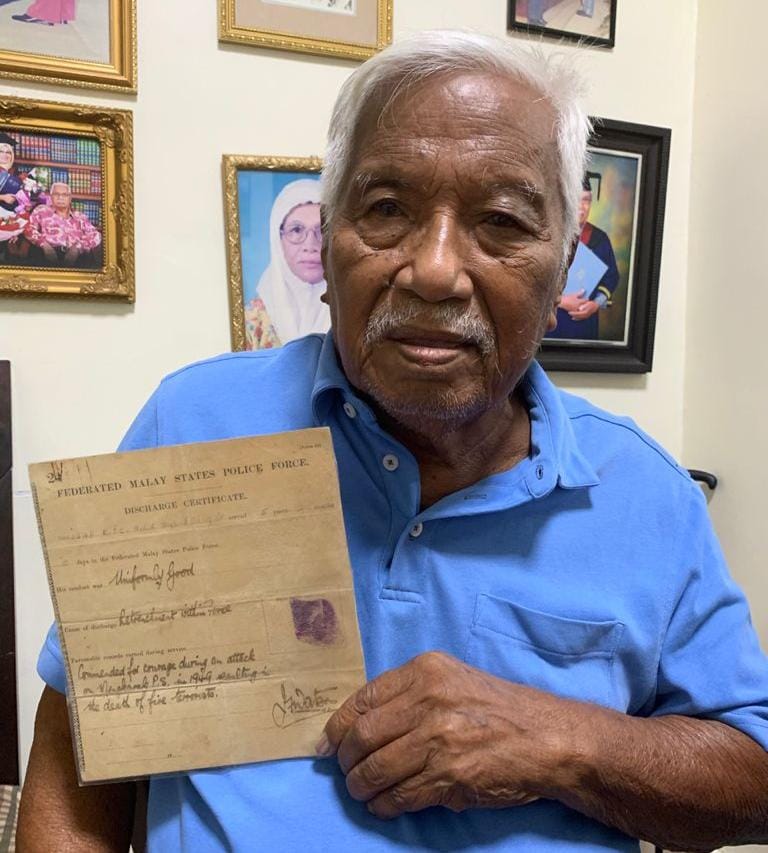 FEDERATED MALAY STATES POLICE FORCE.
DISCHARGE CERTIFICATE.
served 5 years months
days in the Federated Malay States Police Force.
His conduct was Uniformly Good
Cause of discharge Retrenchment within Force
Favourable records earned during service.
Commended for courage during an attack
on P.S. in 1949 resulting in
the death of five terrorists.